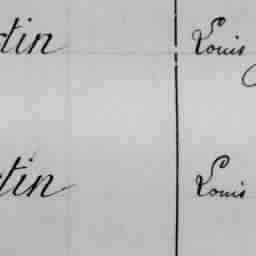 tin Louis
tin Louis